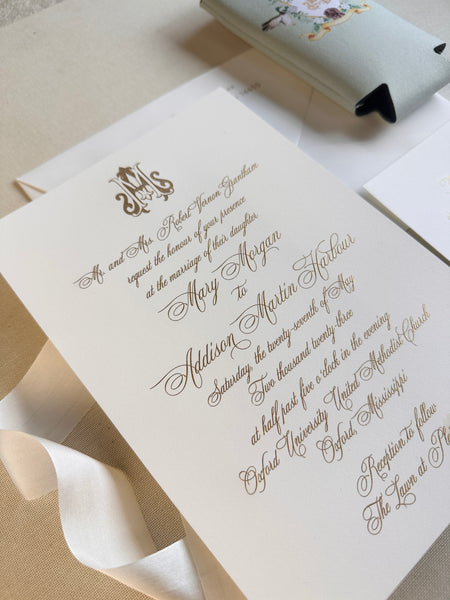 Mr. and Mrs. Robert Vernon Grantham
request the honour of your presence
at the marriage of their daughter
Mary Morgan
to
Addison Martin Harbour
Saturday, the twenty-seventh of May
Two thousand twenty-three
at half past five o'clock in the evening
Oxford University United Methodist Church
Oxford, Mississippi
Reception to follow
The Lawn at